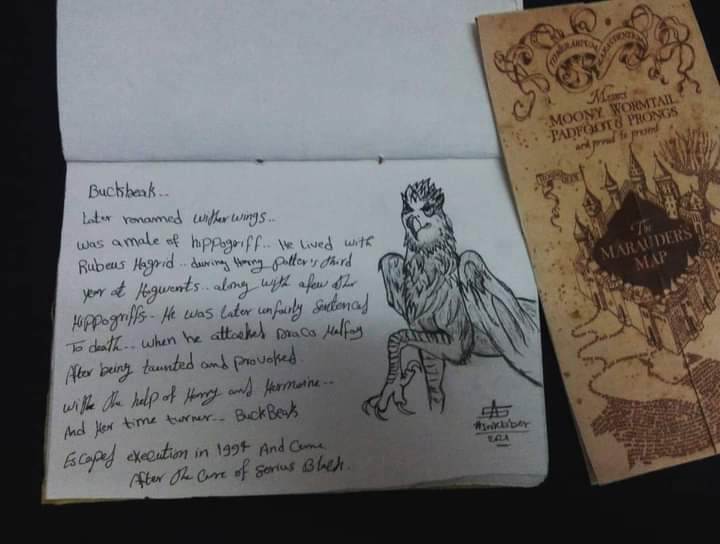 Buckbeak..
Later renamed wither wings..
was a male of hippogriff.. He lived with
Rubeus Hagrid.. during Harry Potter's third
year at Hogwarts.. along with a few other
Hippogriffs.. He was later unfairly sentenced
To death.. when he attacked Draco Malfoy
After being taunted and provoked.
with the help of Harry and Hermoine..
And Her time turner.. BuckBeak
Escaped execution in 1994 And Came
After the Care of Serius Black.
2021
Messrs
MOONY WORMTAIL
PADFOOT & PRONGS
are proud to present
The
MARAUDER'S
MAP